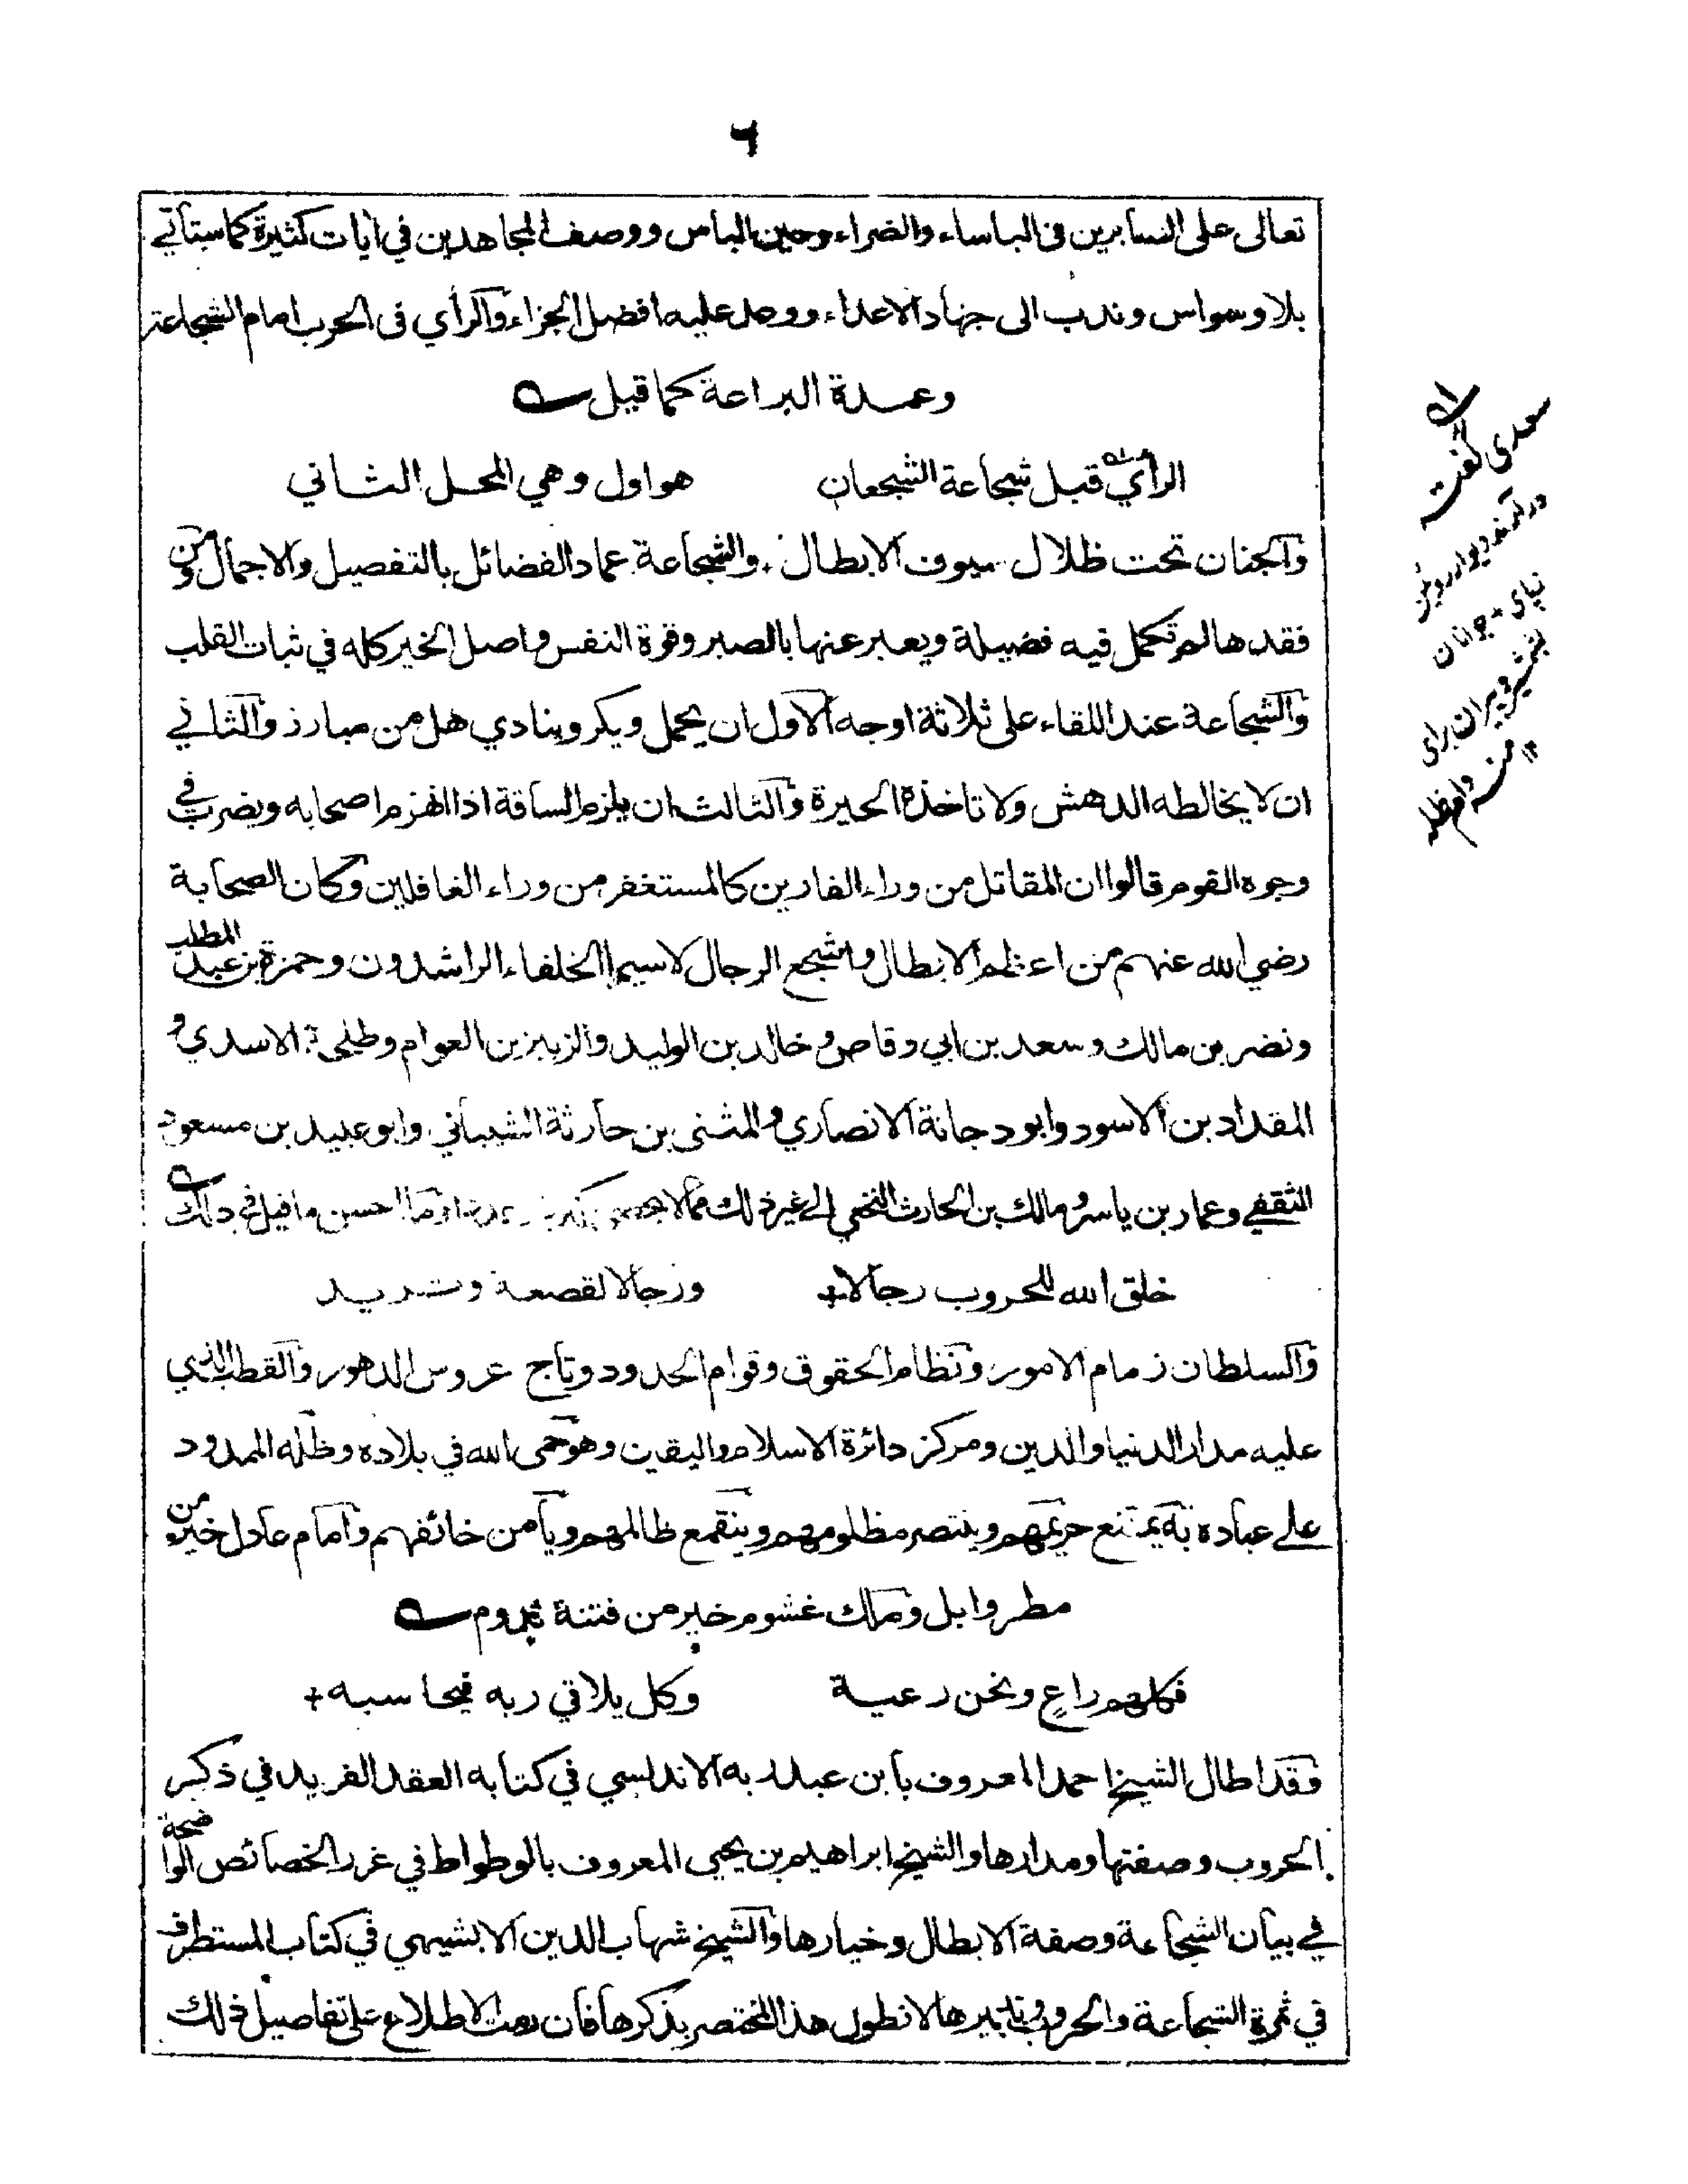 ٦
تعالى على الصابرين في الباساء والضراء وحين الباس ووصف المجاهدين في آيات كثيرة كما ستأتي
بلا وسواس وندب الى جهاد الاعداء ووعد عليه افضل الجزاء والرأي في الحرب امام الشجاعة
وعمدة البراعة كما قيل
الرأي قبل شجاعة الشجعان هو اول وهي المحل الثاني
والجنان تحت ظلال سيوف الابطال والشجاعة عماد الفضائل بالتفصيل والاجمال ومن
فقدها لم تكمل فيه فضيلة ويعبر عنها بالصبر وقوة النفس واصل الخير كله في ثبات القلب
والشجاعة عند اللقاء على ثلاثة اوجه الاول ان يحمل ويكر وينادي هل من مبارز والثاني
ان لا يخالطه الدهش ولا تاخذه الحيرة والثالث ان يلزم الساقة اذا انهزم اصحابه ويضرب في
وجوه القوم قالوا ان المقاتل من وراء الفارين كالمستغفر من وراء الغافلين وكان الصحابة
رضي الله عنهم من اعظم الابطال واشجع الرجال لا سيما الخلفاء الراشدون وحمزة بن عبد المطلب
ونضر بن مالك وسعد بن ابي وقاص وخالد بن الوليد والزبير بن العوام وطليحة الاسدي و
المقداد بن الاسود وابو دجانة الانصاري والمثنى بن حارثة الشيباني وابو عبيد بن مسعود
الثقفي وعمار بن ياسر ومالك بن الحارث النخعي الى غير ذلك مما لا وما احسن ما قيل في ذلك
خلق الله للحروب رجالا ورجالا لقصعة وثريد
والسلطان زمام الامور ونظام الحقوق وقوام الحدود وتاج عروس الدهور والقطب الذي
عليه مدار الدنيا والدين ومركز دائرة الاسلام واليقين وهو حمى الله في بلاده وظله الممدود
على عباده به يمتنع حريمهم وينتصر مظلومهم وينقمع ظالمهم ويأمن خائفهم وامام عادل خير من
مطر وابل وملك غشوم خير من فتنة تدوم
فكلهم راعٍ ونحن رعية وكل يلاقي ربه فيحاسبه
وقد اطال الشيخ احمد المعروف بابن عبد ربه الاندلسي في كتابه العقد الفريد في ذكر
الحروب وصفتها ومدارها والشيخ ابراهيم بن يحيى المعروف بالوطواط في غرر الخصائص الواضحة
في بيان الشجاعة وصفة الابطال وخيارها والشيخ شهاب الدين الابشيهي في كتاب المستطرف
في ثمرة الشجاعة والحروب وتدبيرها لا نطول هذا المختصر بذكرها فان رمت الاطلاع على تفاصيل ذلك
سعدي گفت
درآرند ديوار روئين
ز پای جوانان
بشمشير و پيران برای
منه دام ظله